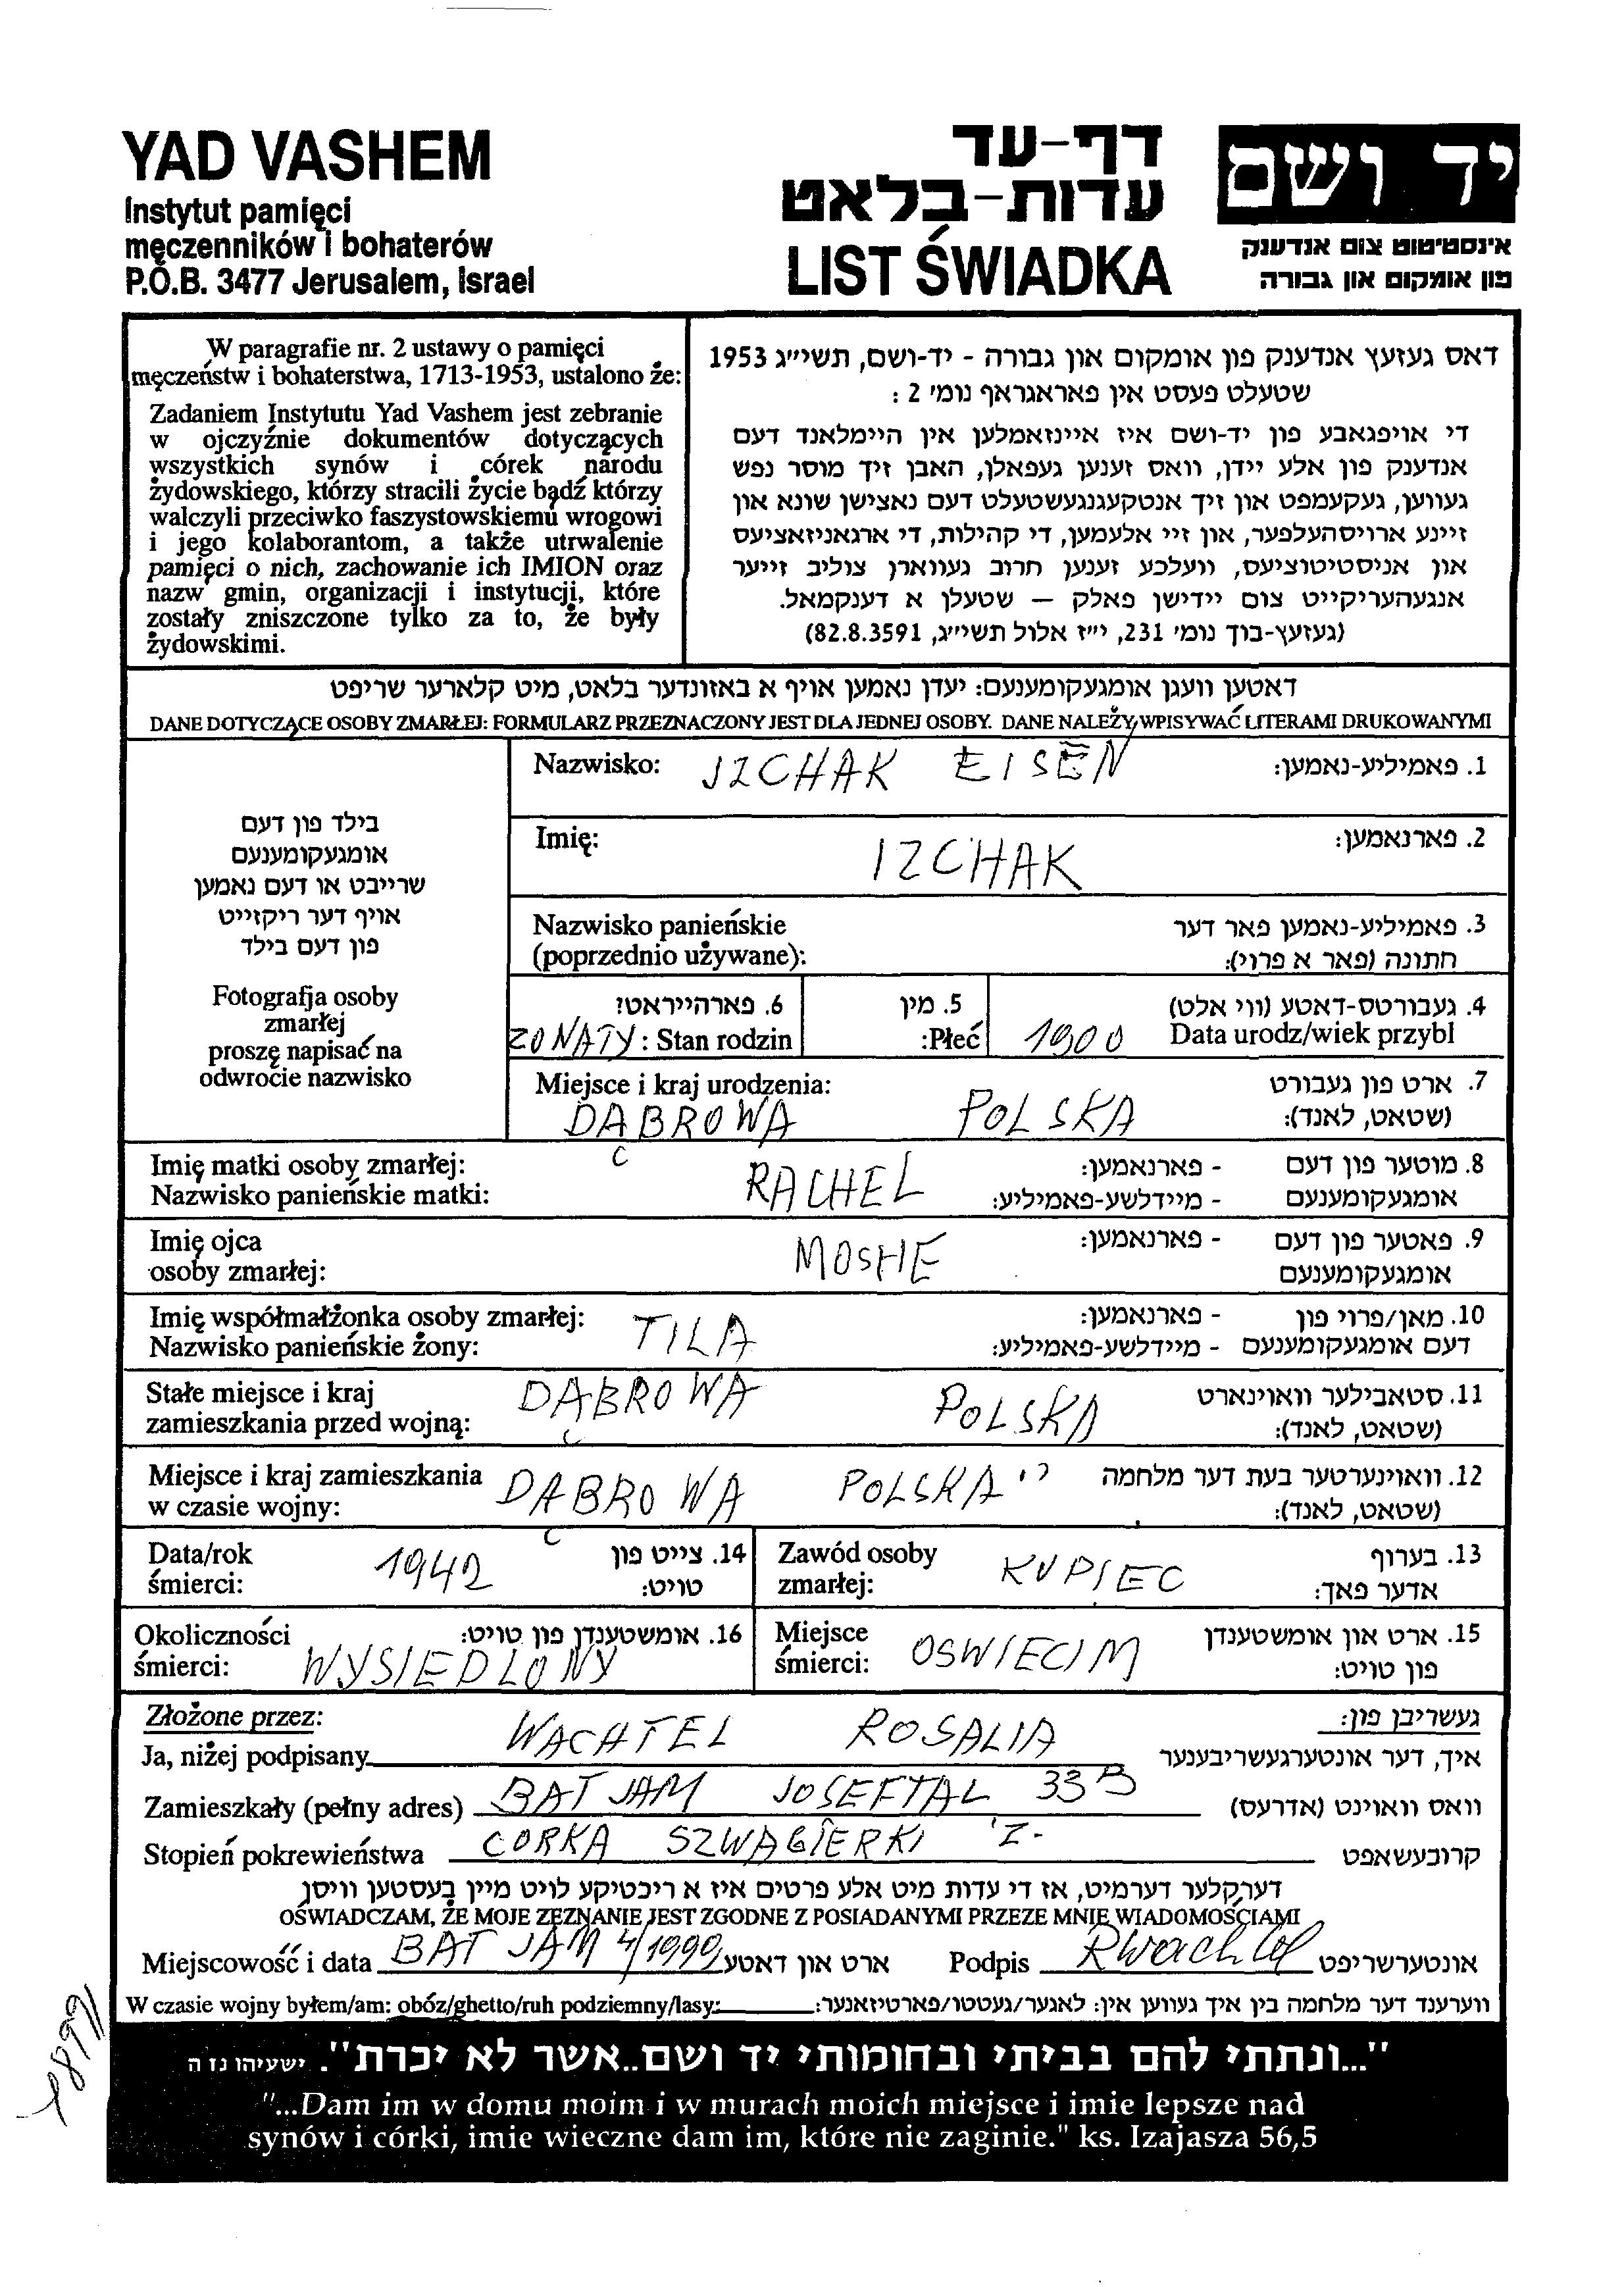 YAD VASHEM
Instytut pamięci
męczenników i bohaterów
P.O.B. 3477 Jerusalem, Israel
דף-עד
עדות-בלאט
LIST ŚWIADKA
יד ושם
אינסטיטוט צום אנדענק
פון אומקום און גבורה
W paragrafie nr. 2 ustawy o pamięci
męczeństw i bohaterstwa, 1713-1953, ustalono że:
Zadaniem Instytutu Yad Vashem jest zebranie
w ojczyźnie dokumentów dotyczących
wszystkich synów i córek narodu
żydowskiego, którzy stracili życie bądź którzy
walczyli przeciwko faszystowskiemu wrogowi
i jego kolaborantom, a także utrwalenie
pamięci o nich, zachowanie ich IMION oraz
nazw gmin, organizacji i instytucji, które
zostały zniszczone tylko za to, że były
żydowskimi.
דאס געזעץ אנדענק פון אומקום און גבורה - יד-ושם, תשי״ג 1953
שטעלט פעסט אין פאראגראף נומ׳ 2 :
די אויפגאבע פון יד-ושם איז איינזאמלען אין היימלאנד דעם
אנדענק פון אלע יידן, וואס זענען געפאלן, האבן זיך מוסר נפש
געווען, געקעמפט און זיך אנטקעגנגעשטעלט דעם נאצישן שונא און
זיינע ארויסהעלפער, און זיי אלעמען, די קהילות, די ארגאניזאציעס
און אניסטיטוציעס, וועלכע זענען חרוב געווארן צוליב זייער
אנגעהעריקייט צום יידישן פאלק – שטעלן א דענקמאל.
(געזעץ-בוך נומ׳ 231, י״ז אלול תשי״ג, 82.8.3591)
דאטען וועגן אומגעקומענעם: יעדן נאמען אויף א באזונדער בלאט, מיט קלארער שריפט
DANE DOTYCZĄCE OSOBY ZMARŁEJ: FORMULARZ PRZEZNACZONY JEST DLA JEDNEJ OSOBY. DANE NALEŻY WPISYWAĆ LITERAMI DRUKOWANYMI
בילד פון דעם
אומגעקומענעם
שרייבט או דעם נאמען
אויף דער ריקזייט
פון דעם בילד
Fotografja osoby
zmarłej
proszę napisać na
odwrocie nazwisko
Nazwisko: JZCHAK EISEN 1. פאמיליע-נאמען:
Imię: IZCHAK 2. פארנאמען:
Nazwisko panieńskie 3. פאמיליע-נאמען פאר דער
(poprzednio używane): חתונה (פאר א פרוי):
6. פארהייראט? 5. מין 4. געבורטס-דאטע (ווי אלט)
ZONATY : Stan rodzin :Płeć 1900 Data urodz/wiek przybl
Miejsce i kraj urodzenia: 7. ארט פון געבורט
DĄBROWA POLSKA (שטאט, לאנד):
Imię matki osoby zmarłej: 8. מוטער פון דעם - פארנאמען:
Nazwisko panieńskie matki: RACHEL אומגעקומענעם - מיידלשע-פאמיליע:
Imię ojca 9. פאטער פון דעם - פארנאמען:
osoby zmarłej: MOSHE אומגעקומענעם
Imię współmałżonka osoby zmarłej: 10. מאן/פרוי פון - פארנאמען:
Nazwisko panieńskie żony: TILA דעם אומגעקומענעם - מיידלשע-פאמיליע:
Stałe miejsce i kraj DĄBROWA POLSKA 11. סטאבילער וואוינארט
zamieszkania przed wojną: (שטאט, לאנד):
Miejsce i kraj zamieszkania DĄBROWA POLSKA 12. וואוינערטער בעת דער מלחמה
w czasie wojny: (שטאט, לאנד):
Data/rok 1942 14. צייט פון
śmierci: טויט:
Zawód osoby KUPIEC 13. בערוף
zmarłej: אדער פאך:
Okoliczności 16. אומשטענדן פון טויט:
śmierci: WYSIEDLONY
Miejsce OSWIECIM 15. ארט און אומשטענדן
śmierci: פון טויט:
Złożone przez: געשריבן פון:
Ja, niżej podpisany WACHTEL ROSALIA איך, דער אונטערגעשריבענער
Zamieszkały (pełny adres) BAT JAM JOSEFTAL 33 B וואס וואוינט (אדרעס)
Stopień pokrewieństwa CORKA SZWAGIERKI קרובעשאפט
דערקלער דערמיט, אז די עדות מיט אלע פרטים איז א ריכטיקע לויט מיין בעסטען וויסן
OŚWIADCZAM, ŻE MOJE ZEZNANIE JEST ZGODNE Z POSIADANYMI PRZEZE MNIE WIADOMOŚCIAMI
Miejscowość i data BAT JAM 4/1999 ארט און דאטע Podpis RWachtel אונטערשריפט
W czasie wojny byłem/am: obóz/ghetto/ruh podziemny/lasy: ווערענד דער מלחמה בין איך געווען אין: לאגער/געטטו/פארטיזאנער:
"...ונתתי להם בביתי ובחומותי יד ושם..אשר לא יכרת". ישעיהו נז ה
"...Dam im w domu moim i w murach moich miejsce i imie lepsze nad
synów i córki, imie wieczne dam im, które nie zaginie." ks. Izajasza 56,5